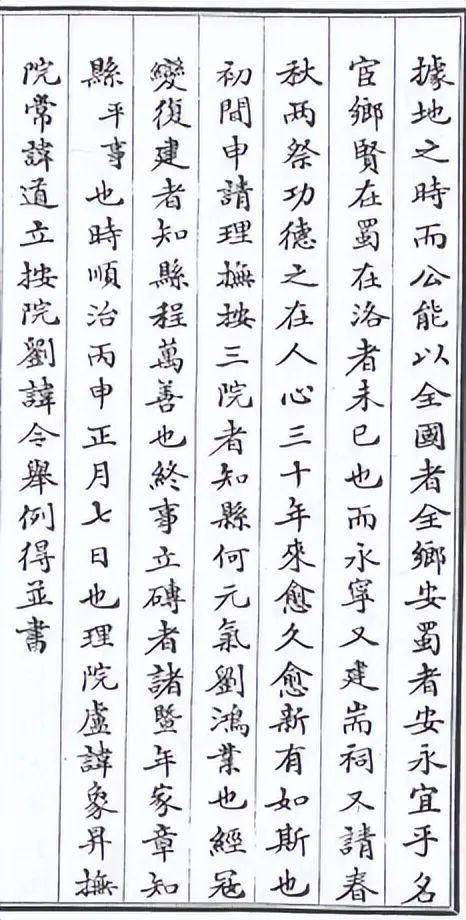 據地之時而公能以全國者全鄉安蜀者安永宜乎名
宦鄉賢在蜀在洛者未已也而永寧又建耑祠又請春
秋兩祭功德之在人心三十年來愈久愈新有如斯也
初間申請理撫按三院者知縣何元氣劉鴻業也經寇
變復建者知縣程萬善也終事立磚者諸暨年家章知
縣平事也時順治丙申正月七日也理院盧諱象昇撫
院常諱道立按院劉諱令舉例得並書